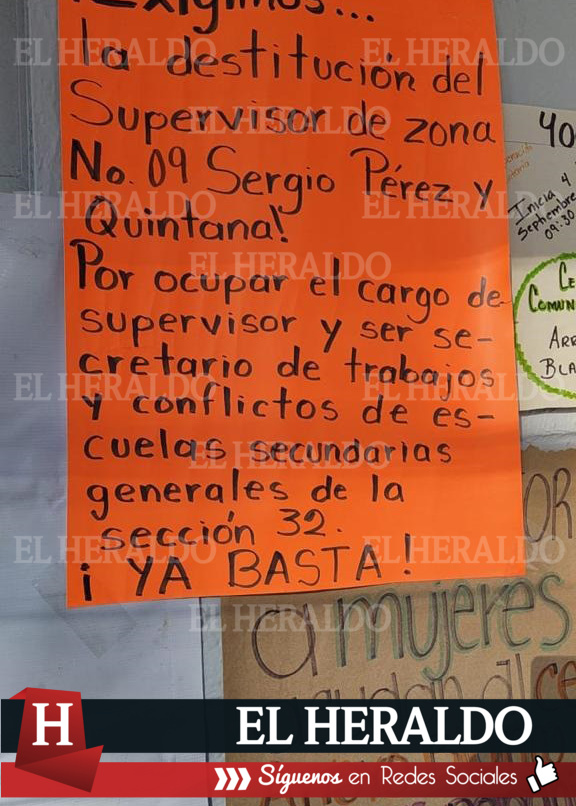 ¡Exigimos...
La destitución del
Supervisor de zona
No. 09 Sergio Pérez y
Quintana!
Por ocupar el cargo de
supervisor y ser se-
cretario de trabajos
y conflictos de es-
cuelas secundarias
generales de la
sección 32.
¡YA BASTA!
40
Inicia 4
Septiembre
09:30
Ce
Comun
Arr
Bla
OR
a mujeres
EL HERALDO
EL HERALDO
EL HERALDO
EL HERALDO
EL HERALDO
EL HERALDO
EL HERALDO
EL HERALDO
EL HERALDO
EL HERALDO
EL HERALDO
EL HERALDO
EL HERALDO
H EL HERALDO
Síguenos en Redes Sociales